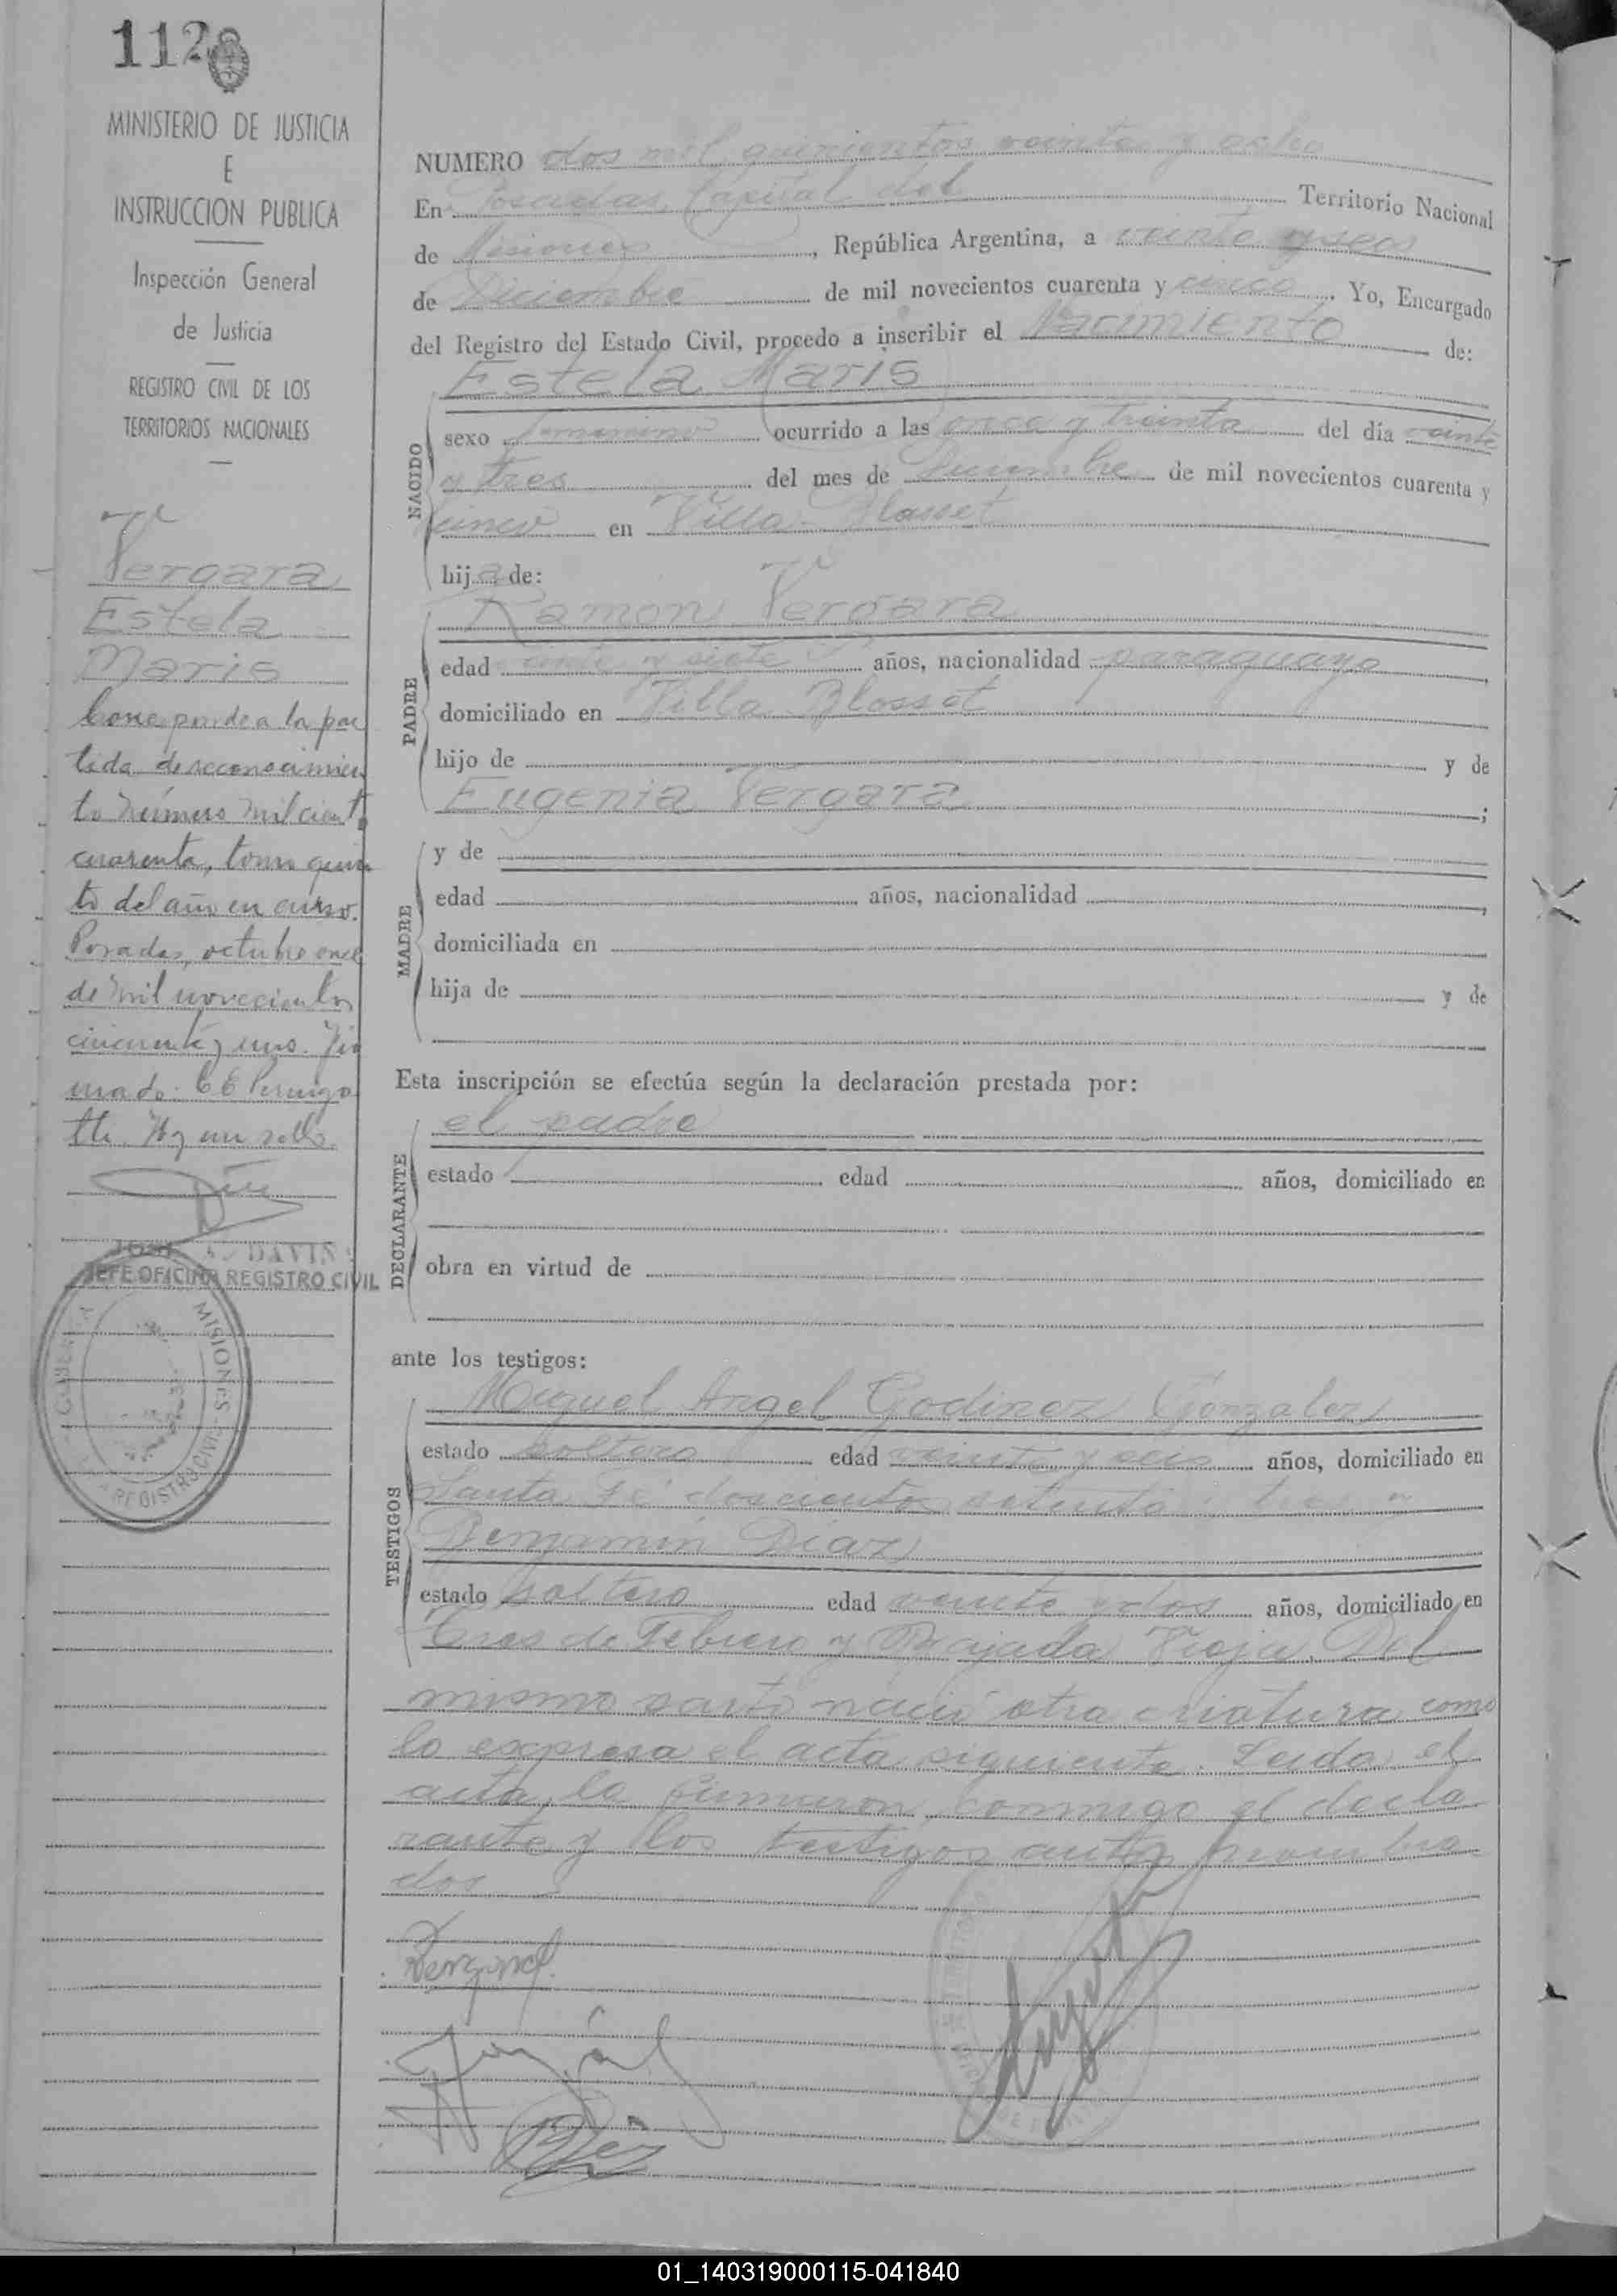 112
MINISTERIO DE JUSTICIA
E
INSTRUCCION PUBLICA
Inspección General
de Justicia
REGISTRO CIVIL DE LOS
TERRITORIOS NACIONALES
Vergara
Estela
Maris
Corresponde a la par
tida de reconocimien
to número mil ciento
cuarenta, tomo quin
to del año en curso.
Posadas, octubre once
de mil novecientos
cincuenta y uno. Fir
mado.
Hay un sello.
DAVIN
JEFE OFICINA REGISTRO CIVIL
MISIONES
REGISTRO CIVIL
NUMERO dos mil quinientos veinte y ocho
En Posadas Capital del Territorio Nacional
de Misiones, República Argentina, a veinte y seis
de Diciembre de mil novecientos cuarenta y cinco. Yo, Encargado
del Registro del Estado Civil, procedo a inscribir el Nacimiento de:
NACIDO
Estela Maris
sexo femenino ocurrido a las once y treinta del día veinte
y tres del mes de Diciembre de mil novecientos cuarenta y
cinco en Villa Blosset
hija de:
PADRE
Ramon Vergara
edad veinte y siete años, nacionalidad paraguayo
domiciliado en Villa Blosset
hijo de y de
Eugenia Vergara;
MADRE
y de
edad años, nacionalidad
domiciliada en
hija de y de
Esta inscripción se efectúa según la declaración prestada por:
DECLARANTE
el padre
estado edad años, domiciliado en
obra en virtud de
ante los testigos:
TESTIGOS
Miguel Angel Godinez Gonzalez
estado soltero edad veinte y seis años, domiciliado en
Santa Fé doscientos setenta
Benjamín Diaz
estado soltero edad veinte y dos años, domiciliado en
Tres de Febrero y Bajada Vieja. Del
mismo parto nació otra criatura como
lo expresa el acta siguiente. Leida el
acta, la firmaron conmigo el decla
rante y los testigos antes nombra
dos
01_140319000115-041840